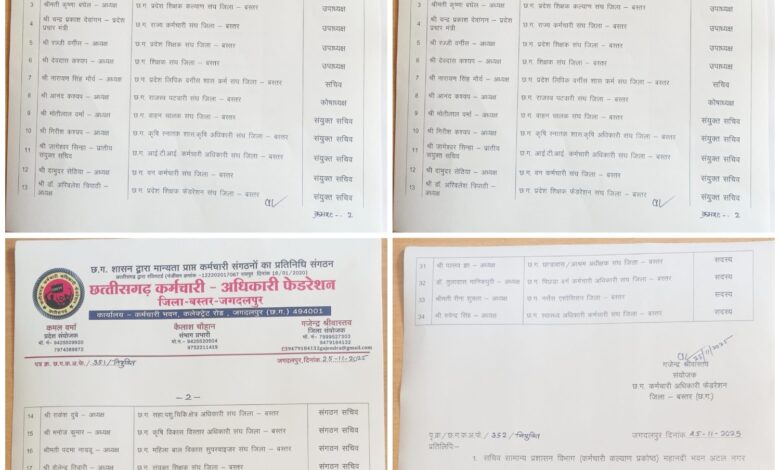 3 श्रीमती कृष्णा बघेल – अध्यक्ष छ.ग. प्रदेश शिक्षक कल्याण संघ जिला – बस्तर उपाध्यक्ष
4 श्री चन्द्र प्रकाश देवांगन – प्रदेश प्रचार मंत्री छ.ग. राज्य कर्मचारी संघ जिला – बस्तर उपाध्यक्ष
5 श्री रज्जी वर्गीस – अध्यक्ष छ.ग. प्रदेश शिक्षक संघ जिला – बस्तर उपाध्यक्ष
6 श्री देवदास कश्यप – अध्यक्ष छ.ग. शिक्षक संघ जिला – बस्तर उपाध्यक्ष
7 श्री नारायण सिंह मौर्य – अध्यक्ष छ.ग. प्रदेश लिपिक वर्गीय शास कर्म संघ जिला – बस्तर सचिव
8 श्री आनंद कश्यप – अध्यक्ष छ.ग. राजस्व पटवारी संघ जिला – बस्तर कोषाध्यक्ष
9 श्री मोतीलाल वर्मा – अध्यक्ष छ.ग. वाहन चालक संघ जिला – बस्तर संयुक्त सचिव
10 श्री गिरीश कश्यप – अध्यक्ष छ.ग. कृषि स्नातक शास.कृषि अधिकारी संघ जिला – बस्तर संयुक्त सचिव
11 श्री जागेश्वर सिन्हा – प्रांतीय संयुक्त सचिव छ.ग. आई.टी.आई. कर्मचारी अधिकारी संघ जिला – बस्तर संयुक्त सचिव
12 श्री दामुदर सेठिया – अध्यक्ष छ.ग. वन कर्मचारी संघ जिला – बस्तर संयुक्त सचिव
13 श्री डॉ. अखिलेश त्रिपाठी – अध्यक्ष छ.ग. प्रदेश शिक्षक फेडरेशन संघ जिला – बस्तर संयुक्त सचिव
क्रमशः – 2
3 श्रीमती कृष्णा बघेल – अध्यक्ष छ.ग. प्रदेश शिक्षक कल्याण संघ जिला – बस्तर उपाध्यक्ष
4 श्री चन्द्र प्रकाश देवांगन – प्रदेश प्रचार मंत्री छ.ग. राज्य कर्मचारी संघ जिला – बस्तर उपाध्यक्ष
5 श्री रज्जी वर्गीस – अध्यक्ष छ.ग. प्रदेश शिक्षक संघ जिला – बस्तर उपाध्यक्ष
6 श्री देवदास कश्यप – अध्यक्ष छ.ग. शिक्षक संघ जिला – बस्तर उपाध्यक्ष
7 श्री नारायण सिंह मौर्य – अध्यक्ष छ.ग. प्रदेश लिपिक वर्गीय शास कर्म संघ जिला – बस्तर सचिव
8 श्री आनंद कश्यप – अध्यक्ष छ.ग. राजस्व पटवारी संघ जिला – बस्तर कोषाध्यक्ष
9 श्री मोतीलाल वर्मा – अध्यक्ष छ.ग. वाहन चालक संघ जिला – बस्तर संयुक्त सचिव
10 श्री गिरीश कश्यप – अध्यक्ष छ.ग. कृषि स्नातक शास.कृषि अधिकारी संघ जिला – बस्तर संयुक्त सचिव
11 श्री जागेश्वर सिन्हा – प्रांतीय संयुक्त सचिव छ.ग. आई.टी.आई. कर्मचारी अधिकारी संघ जिला – बस्तर संयुक्त सचिव
12 श्री दामुदर सेठिया – अध्यक्ष छ.ग. वन कर्मचारी संघ जिला – बस्तर संयुक्त सचिव
13 श्री डॉ. अखिलेश त्रिपाठी – अध्यक्ष छ.ग. प्रदेश शिक्षक फेडरेशन संघ जिला – बस्तर संयुक्त सचिव
क्रमशः – 2
छ.ग. शासन द्वारा मान्यता प्राप्त कर्मचारी संगठनों का प्रतिनिधि संगठन
छत्तीसगढ़ कर्मचारी - अधिकारी फेडरेशन
जिला-बस्तर-जगदलपुर
कार्यालय – कर्मचारी भवन, कलेक्ट्रेट रोड, जगदलपुर (छ.ग.) 494001
कमल वर्मा
प्रदेश संयोजक
कैलाश चौहान
संभाग प्रभारी
गजेन्द्र श्रीवास्तव
जिला संयोजक
जगदलपुर,दिनांक 25-11-2025
–2–
14 श्री राकेश दुबे – अध्यक्ष संघ जिला – बस्तर संगठन सचिव
15 श्री मनोज कुमार – अध्यक्ष छ.ग. कृषि विकास विस्तार अधिकारी संघ जिला – बस्तर संगठन सचिव
16 श्रीमती पदमा नायडू – अध्यक्ष छ.ग. महिला बाल विकास सुपरवाइजर संघ जिला – बस्तर संगठन सचिव
17 श्री शैलेन्द्र तिवारी – अध्यक्ष छ.ग. संयुक्त शिक्षक संघ जिला – बस्तर संगठन सचिव
31 छ.ग. छात्रावास/आश्रम अधीक्षक संघ जिला – बस्तर सदस्य
32 छ.ग. पिछड़ा वर्ग कर्मचारी अधिकारी संघ जिला – बस्तर सदस्य
33 श्रीमती रीना शुक्ला – अध्यक्ष छ.ग. नर्सेस एसोसिएशन जिला – बस्तर सदस्य
34 श्री रुपेन्द्र सिंह – अध्यक्ष छ.ग. स्वास्थ्य अधिकारी कर्मचारी संघ जिला – बस्तर सदस्य
25/11/2025
गजेन्द्र श्रीवास्तव
संयोजक
छ.ग. कर्मचारी अधिकारी फेडरेशन
जिला – बस्तर (छ.ग.)
पृ.क्र./छ.ग.क.अ.फे./352/नियुक्ति जगदलपुर दिनांक 25-11-2025
प्रतिलिपि:-
1. सचिव सामान्य प्रशासन विभाग (कर्मचारी कल्याण प्रकोष्ठ) महानदी भवन अटल नगर